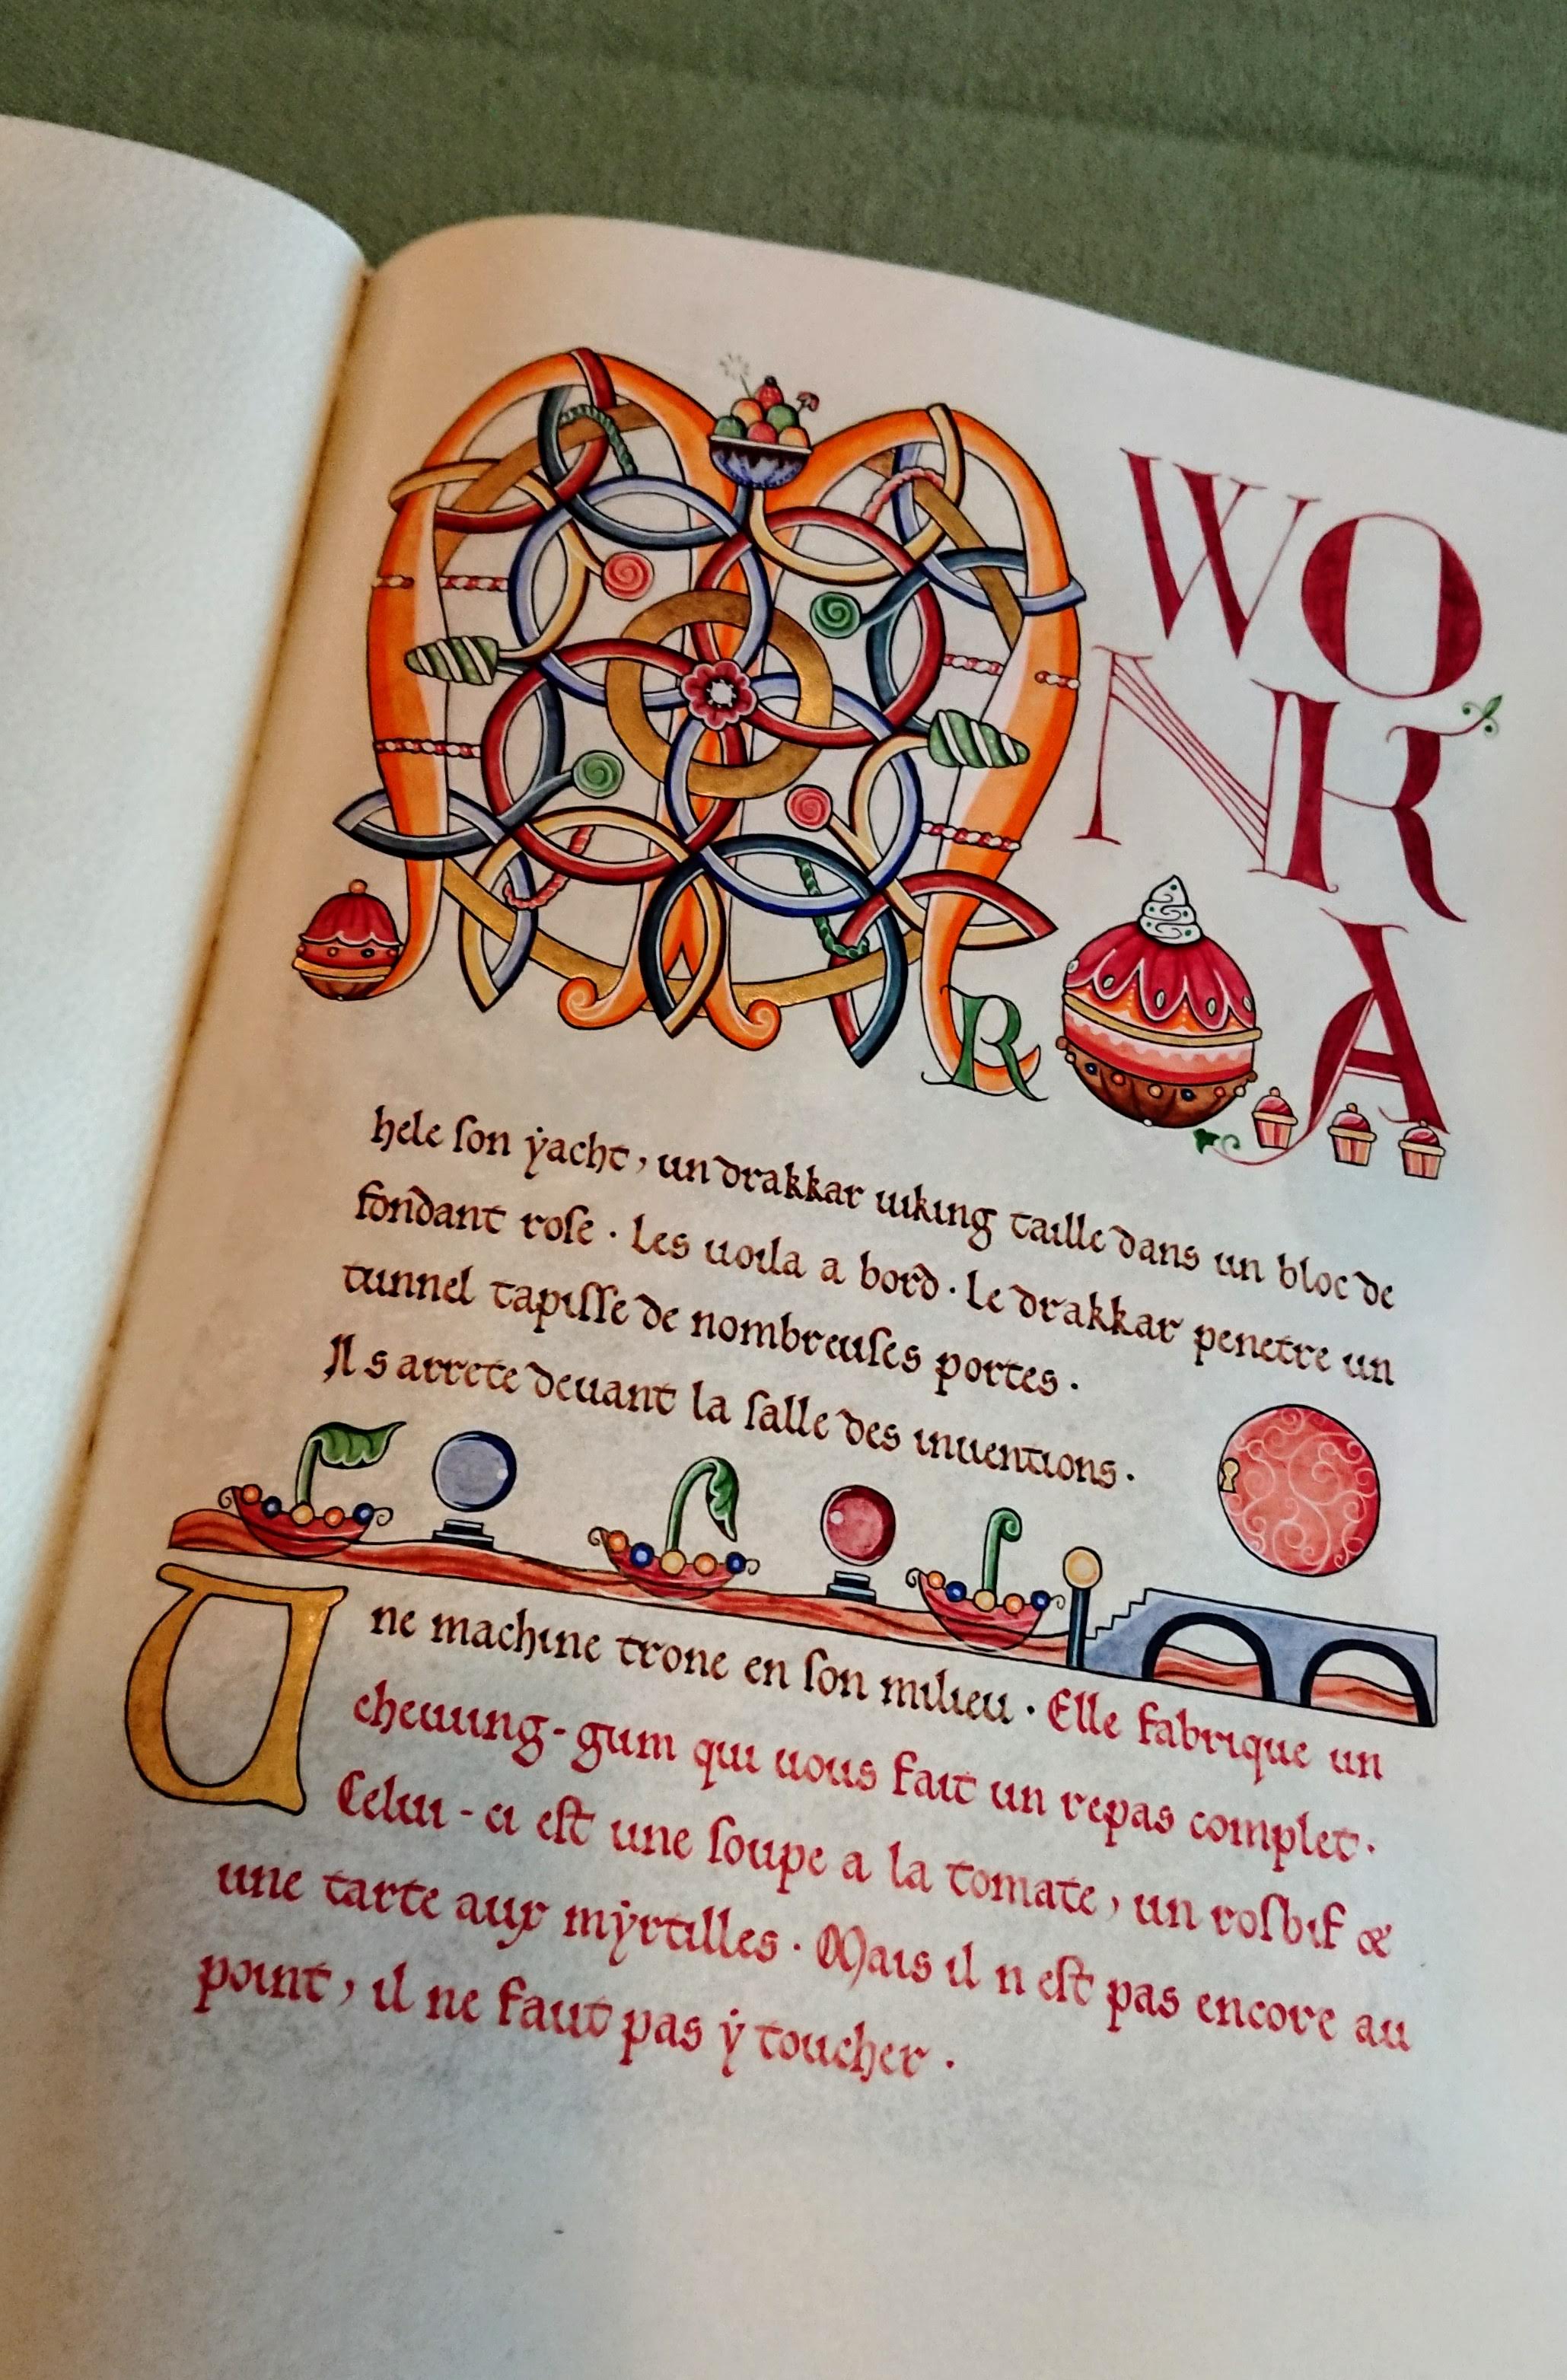 M
R
WO
NK
A
hele ſon ẏacht, un drakkar uiking taille dans un bloc de
fondant roſe · Les uoila a bord · Le drakkar penetre un
tunnel tapiſſe de nombreuſes portes ·
Il s arrete deuant la ſalle des inuentions ·
Une machine trone en ſon milieu · Elle fabrique un
cheuuing-gum qui uous fait un repas complet ·
Celui-ci eſt une ſoupe a la tomate, un roſbif &
une tarte aux mẏrtilles · Mais il n eſt pas encore au
point, il ne faut pas ẏ toucher ·